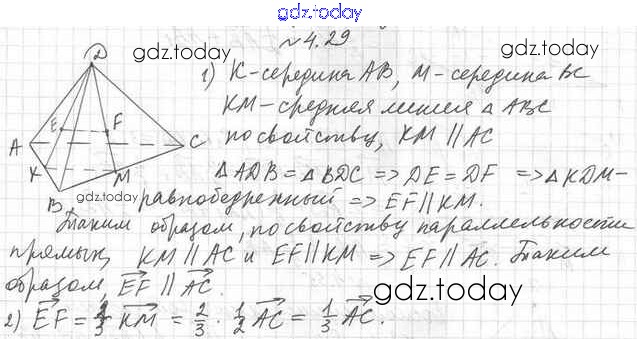 gdz.today
№ 4.29
gdz.today
gdz.today
1) K-середина AB, M-середина BC
KM-средняя линия △ ABC
по свойству, KM || AC
△ ADB = △ BDC => DE = DF => △ KDM-
равнобедренный => EF || KM.
Таким образом, по свойству параллельности
прямых, KM || AC и EF || KM => EF || AC. Таким
образом, EF || AC.
2) EF = 2/3 KM = 2/3 · 1/2 AC = 1/3 AC.
D
E
F
A
C
K
M
B
gdz.today
gdz.today